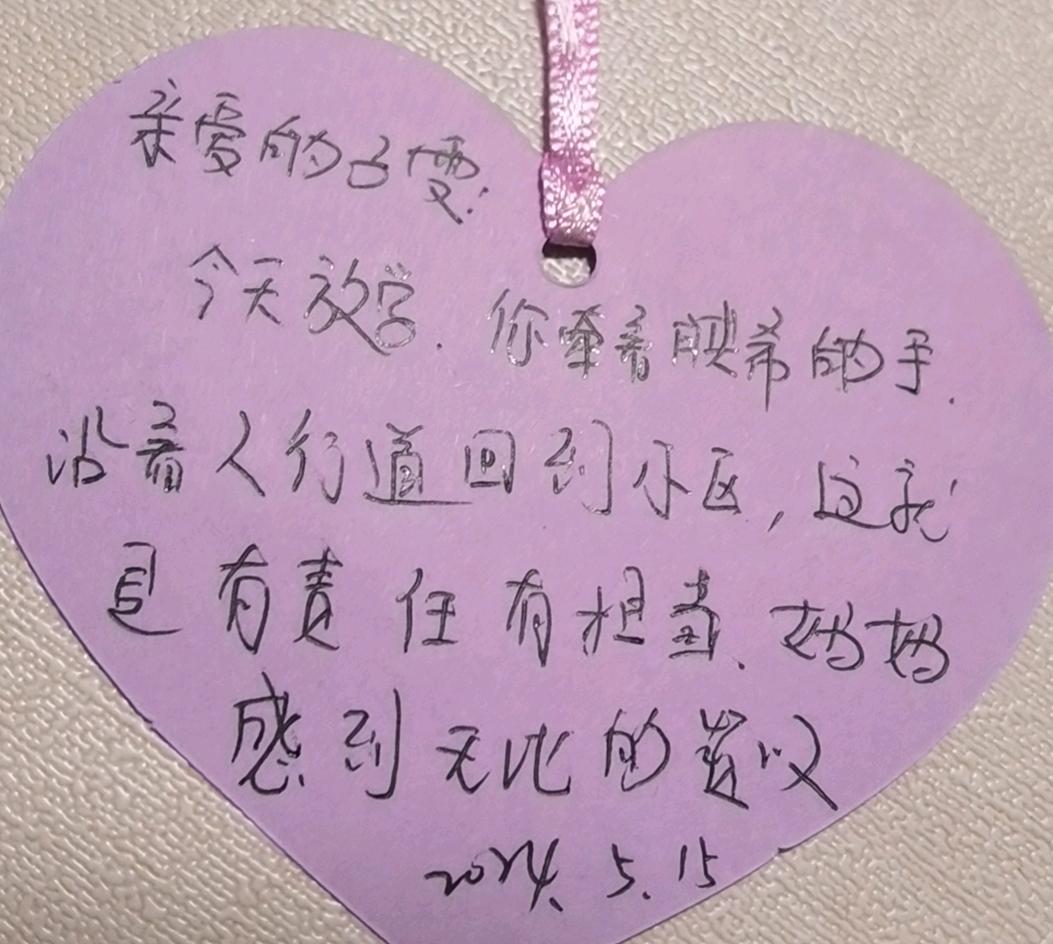 亲爱的占雯:
今天放学.你牵着映希的手.
沿着人行道回到小区,这就
是有责任有担当、妈妈
感到无比的赞叹
2024.5.15